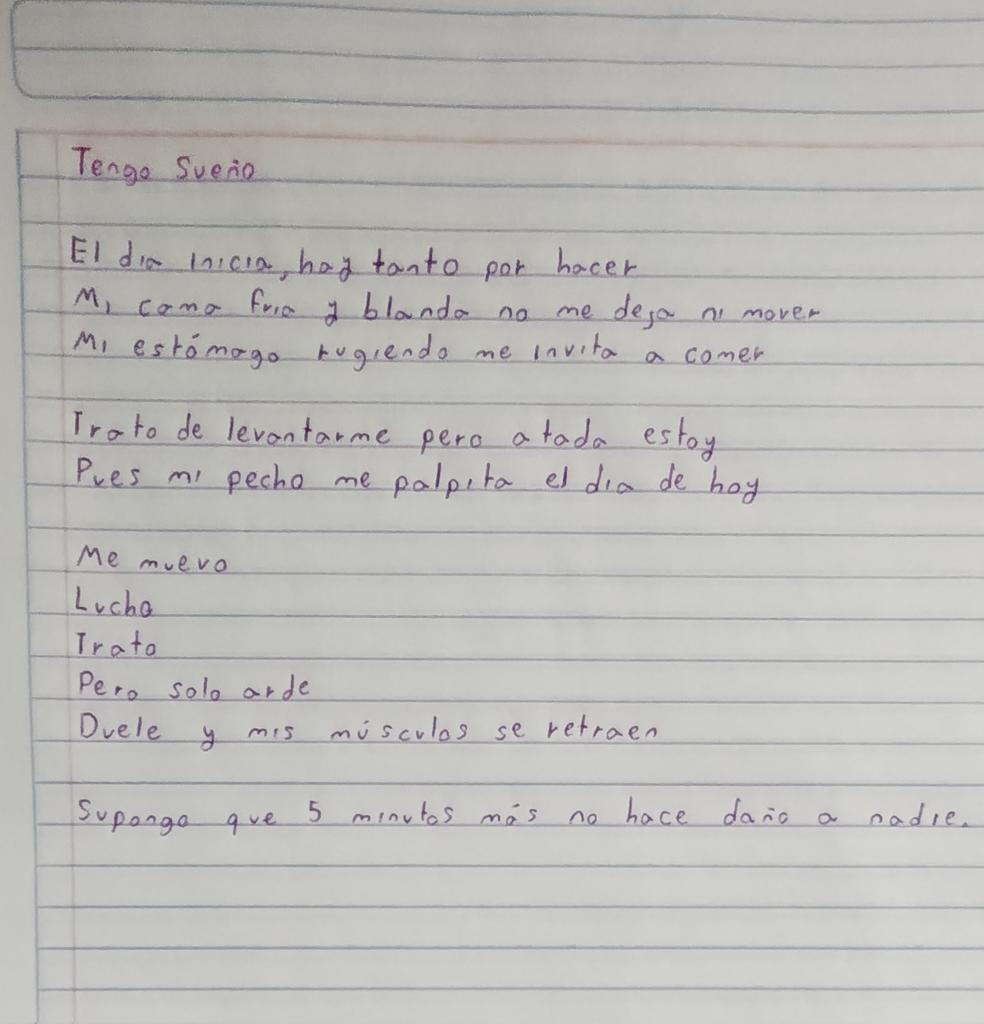 Tengo Sueño
El día inicia, hay tanto por hacer
Mi cama fria y blanda no me deja ni mover
Mi estómago rugiendo me invita a comer
Trato de levantarme pero atada estoy
Pues mi pecho me palpita el dia de hoy
Me muevo
Lucho
Trato
Pero solo arde
Duele y mis músculos se retraen
Supongo que 5 minutos más no hace daño a nadie.